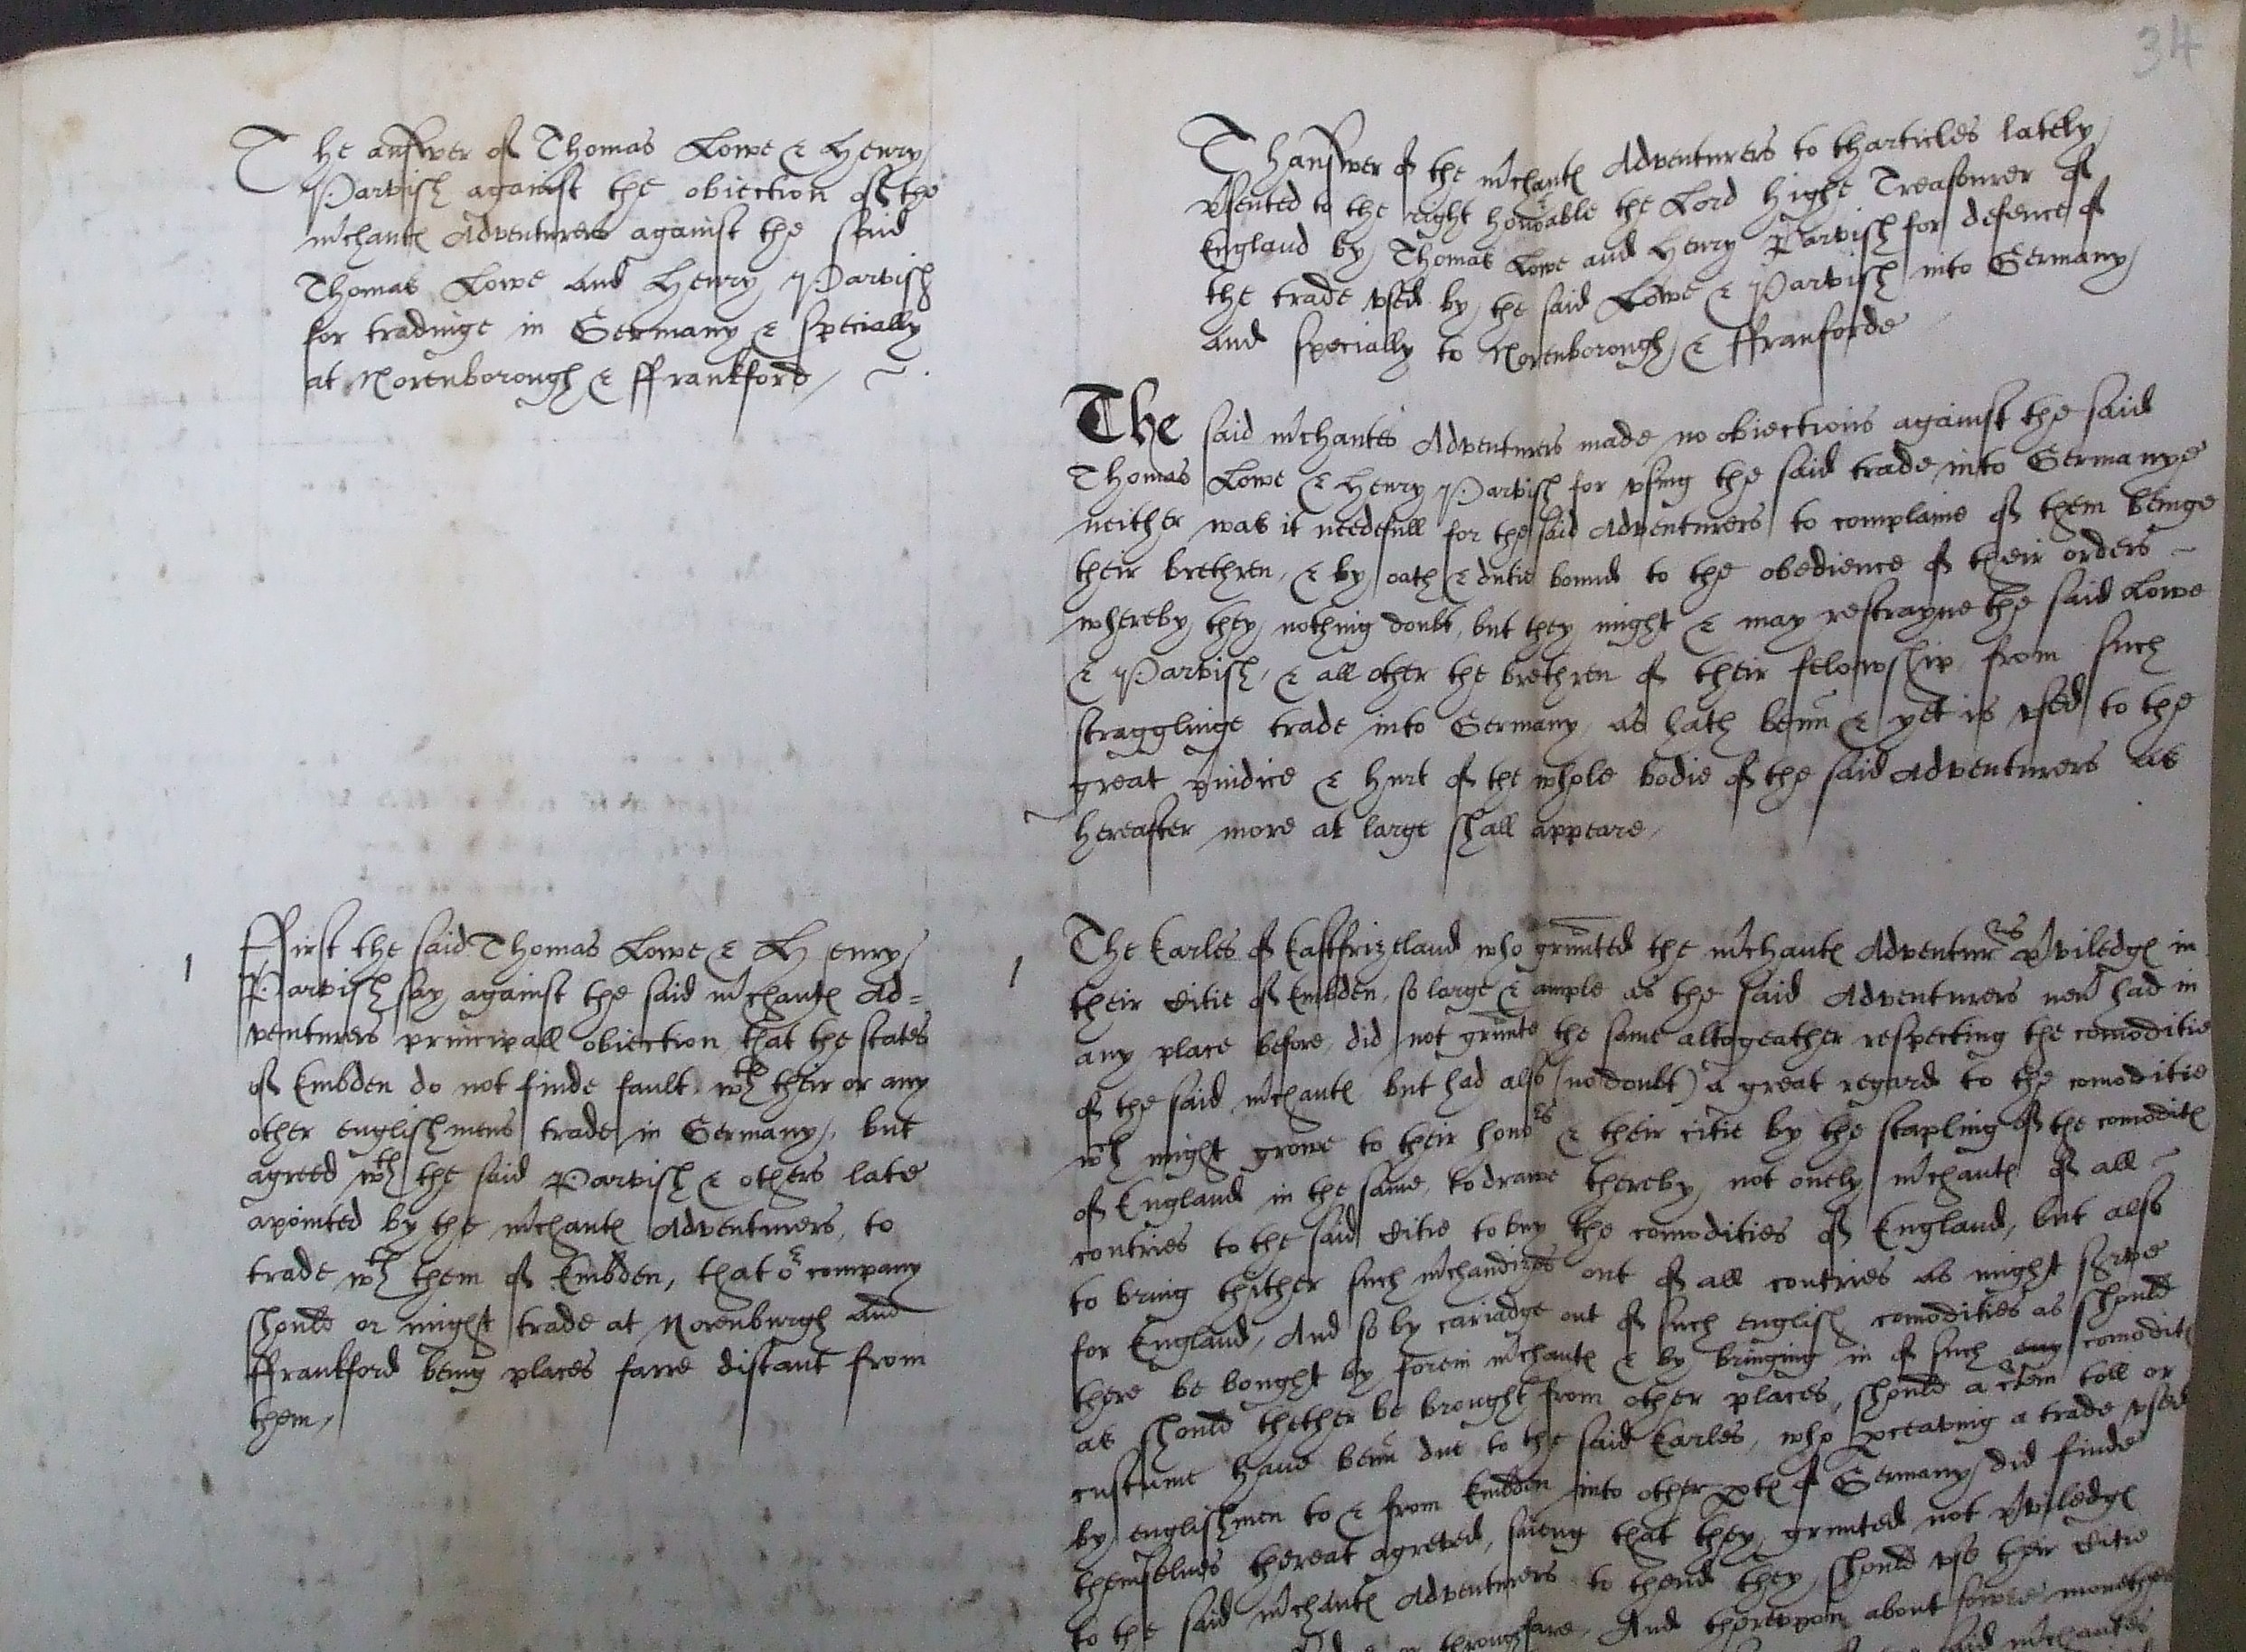 34
The answer of Thomas Lowe & Henry
Parvish against the obiection of the
mʳchantes Adventurers against the said
Thomas Lowe and Henry Parvish
for tradinge in Germany & specially
at Norenborough & ffrankford
1 ffirst the said Thomas Lowe & Henry
Parvish say against the said mʳchantes Ad=
venturers principall obiection that the states
of Embden do not finde fault wᵗʰ their or any
other englishmens trade in Germany, but
agreed wᵗʰ the said Parvish & others late
apointed by the mʳchantes Adventurers, to
trade wᵗʰ them of Embden, that oʳ company
should or might trade at Norenburgh and
ffrankford being places farre distant from
them,
Thanswer of the mʳchantes Adventurers to tharticles lately
pʳsented to the right honoʳable the Lord highe Treasourer of
England by Thomas Lowe and Henry Parvish for defence of
the trade vsed by the said Lowe & Parvish into Germany
and specially to Norenborough & ffranforde
The said mʳchantes Adventurers made no obiections against the said
Thomas Lowe & Henry Parvish for vsing the said trade into Germanye
neither was it needefull for the said Adventurers to complaine of them beinge
their brethren, & by oath & dutie bound to the obedience of their orders
whereby they nothing doubt, but they might & may restrayne the said Lowe
& Parvish, & all other the brethren of their felowship from such
stragglinge trade into Germany as hath benn & yet is vsed to the
great pʳiudice & hurt of the whole bodie of the said Adventurers as
hereafter more at large shall appeare,
1 The Earles of Eastfrizeland who grunted the mʳchantes Adventurʳᵉˢ pʳviledges in
their Citie of Embden, so large & ample as the said Adventurers nevʳ had in
any place before, did not grunte the same altogeather respecting the comoditie
of the said mʳchantes but had also (no doubt) a great regard to the comoditie
wᶜʰ might growe to their honoʳˢ & their citie by the stapling of the comodites
of England in the same, to drawe thereby not onely mʳchantes of all
contries to the said Citie to buy the comodities of England, but also
to bring thither such mʳchandizes out of all contries as might serve
for England, And so by cariadge out of such english comodities as should
there be bought by forein mʳchantes & by bringing in of such any comodites
as should thether be brought from other places, should a cʳtein toll or
custume have benn due to the said Earles, who perceaving a trade vsed
by englishmen to & from Embden into other partes of Germany did finde
themselues thereat agreved, saieng that they grunted not pʳviledges
to the said mʳchantes Adventurers to thend they should vse their Citie
throughfare, And therevpon about fowre monethes
said mʳchantes